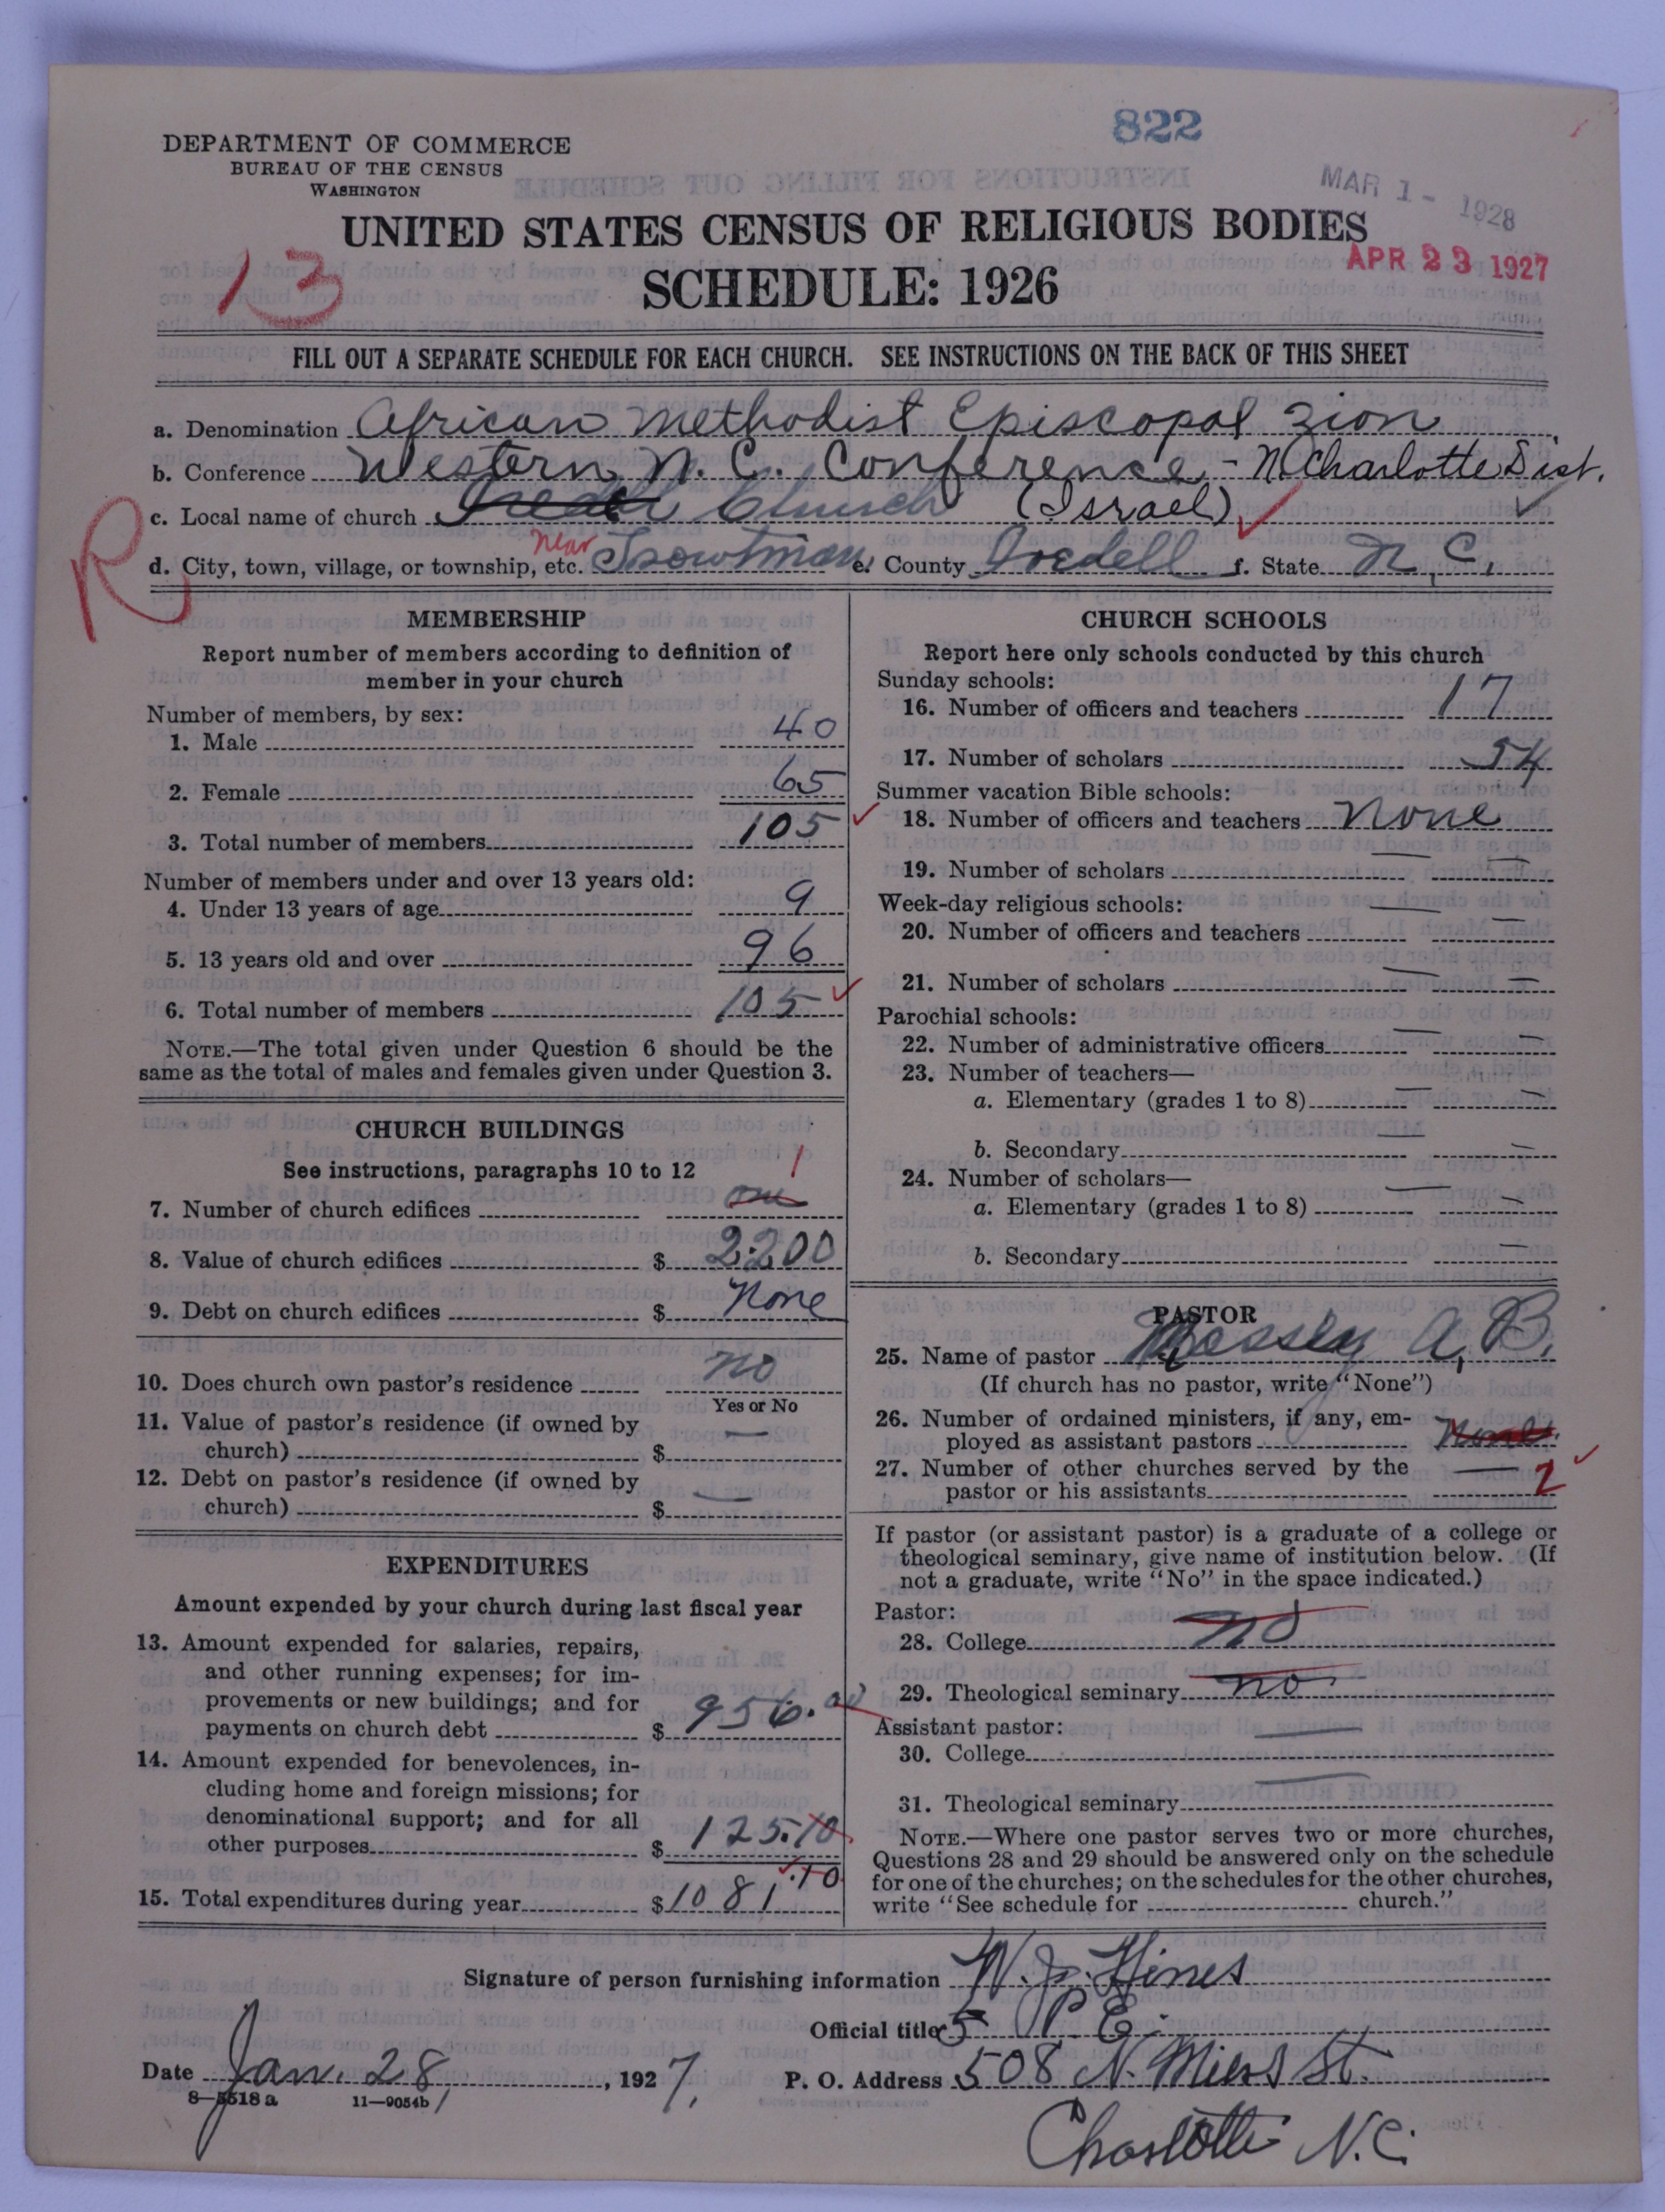 822
DEPARTMENT OF COMMERCE
BUREAU OF THE CENSUS
WASHINGTON
MAR 1 - 1928
UNITED STATES CENSUS OF RELIGIOUS BODIES
APR 23 1927
13
SCHEDULE: 1926
FILL OUT A SEPARATE SCHEDULE FOR EACH CHURCH. SEE INSTRUCTIONS ON THE BACK OF THIS SHEET
a. Denomination African Methodist Episcopal Zion
b. Conference Western N. C. Conference - N Charlotte Dist.
c. Local name of church Iredell Church (Israel)
R
d. City, town, village, or township, etc. near Troutman e. County Iredell f. State N. C.
MEMBERSHIP
Report number of members according to definition of
member in your church
Number of members, by sex:
1. Male 40
2. Female 65
3. Total number of members 105
Number of members under and over 13 years old:
4. Under 13 years of age 9
5. 13 years old and over 96
6. Total number of members 105
NOTE.—The total given under Question 6 should be the
same as the total of males and females given under Question 3.
CHURCH BUILDINGS
See instructions, paragraphs 10 to 12
7. Number of church edifices one 1
8. Value of church edifices $ 2200
9. Debt on church edifices $ None
10. Does church own pastor's residence no
Yes or No
11. Value of pastor's residence (if owned by
church) $ —
12. Debt on pastor's residence (if owned by
church) $ —
EXPENDITURES
Amount expended by your church during last fiscal year
13. Amount expended for salaries, repairs,
and other running expenses; for im-
provements or new buildings; and for
payments on church debt $ 956.00
14. Amount expended for benevolences, in-
cluding home and foreign missions; for
denominational support; and for all
other purposes $ 125.10
15. Total expenditures during year $ 1081.10
CHURCH SCHOOLS
Report here only schools conducted by this church
Sunday schools:
16. Number of officers and teachers 17
17. Number of scholars 54
Summer vacation Bible schools:
18. Number of officers and teachers None
19. Number of scholars — —
Week-day religious schools:
20. Number of officers and teachers — —
21. Number of scholars — —
Parochial schools:
22. Number of administrative officers — —
23. Number of teachers—
a. Elementary (grades 1 to 8) — —
b. Secondary — —
24. Number of scholars—
a. Elementary (grades 1 to 8) — —
b. Secondary —
PASTOR
25. Name of pastor Massey A. B.
(If church has no pastor, write "None")
26. Number of ordained ministers, if any, em-
ployed as assistant pastors None
27. Number of other churches served by the
pastor or his assistants — 2
If pastor (or assistant pastor) is a graduate of a college or
theological seminary, give name of institution below. (If
not a graduate, write "No" in the space indicated.)
Pastor:
28. College no
29. Theological seminary no
Assistant pastor:
30. College —
31. Theological seminary —
NOTE.—Where one pastor serves two or more churches,
Questions 28 and 29 should be answered only on the schedule
for one of the churches; on the schedules for the other churches,
write "See schedule for church."
Signature of person furnishing information W. J. Hines
Official title P. E.
Date Jan. 28, 1927. P. O. Address 508 N. Miers St.
8—5518 a 11—9054b
Charlotte N.C.